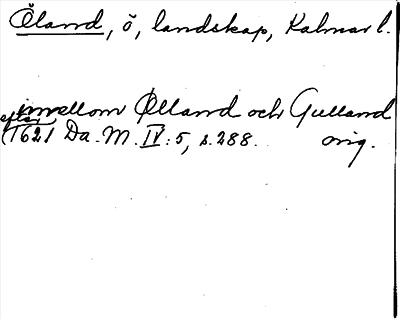 Öland, ö, landskap, Kalmar l.
imellom Ølland och Gulland
(efter 1621 Da. M. IV: 5, s. 288. orig.